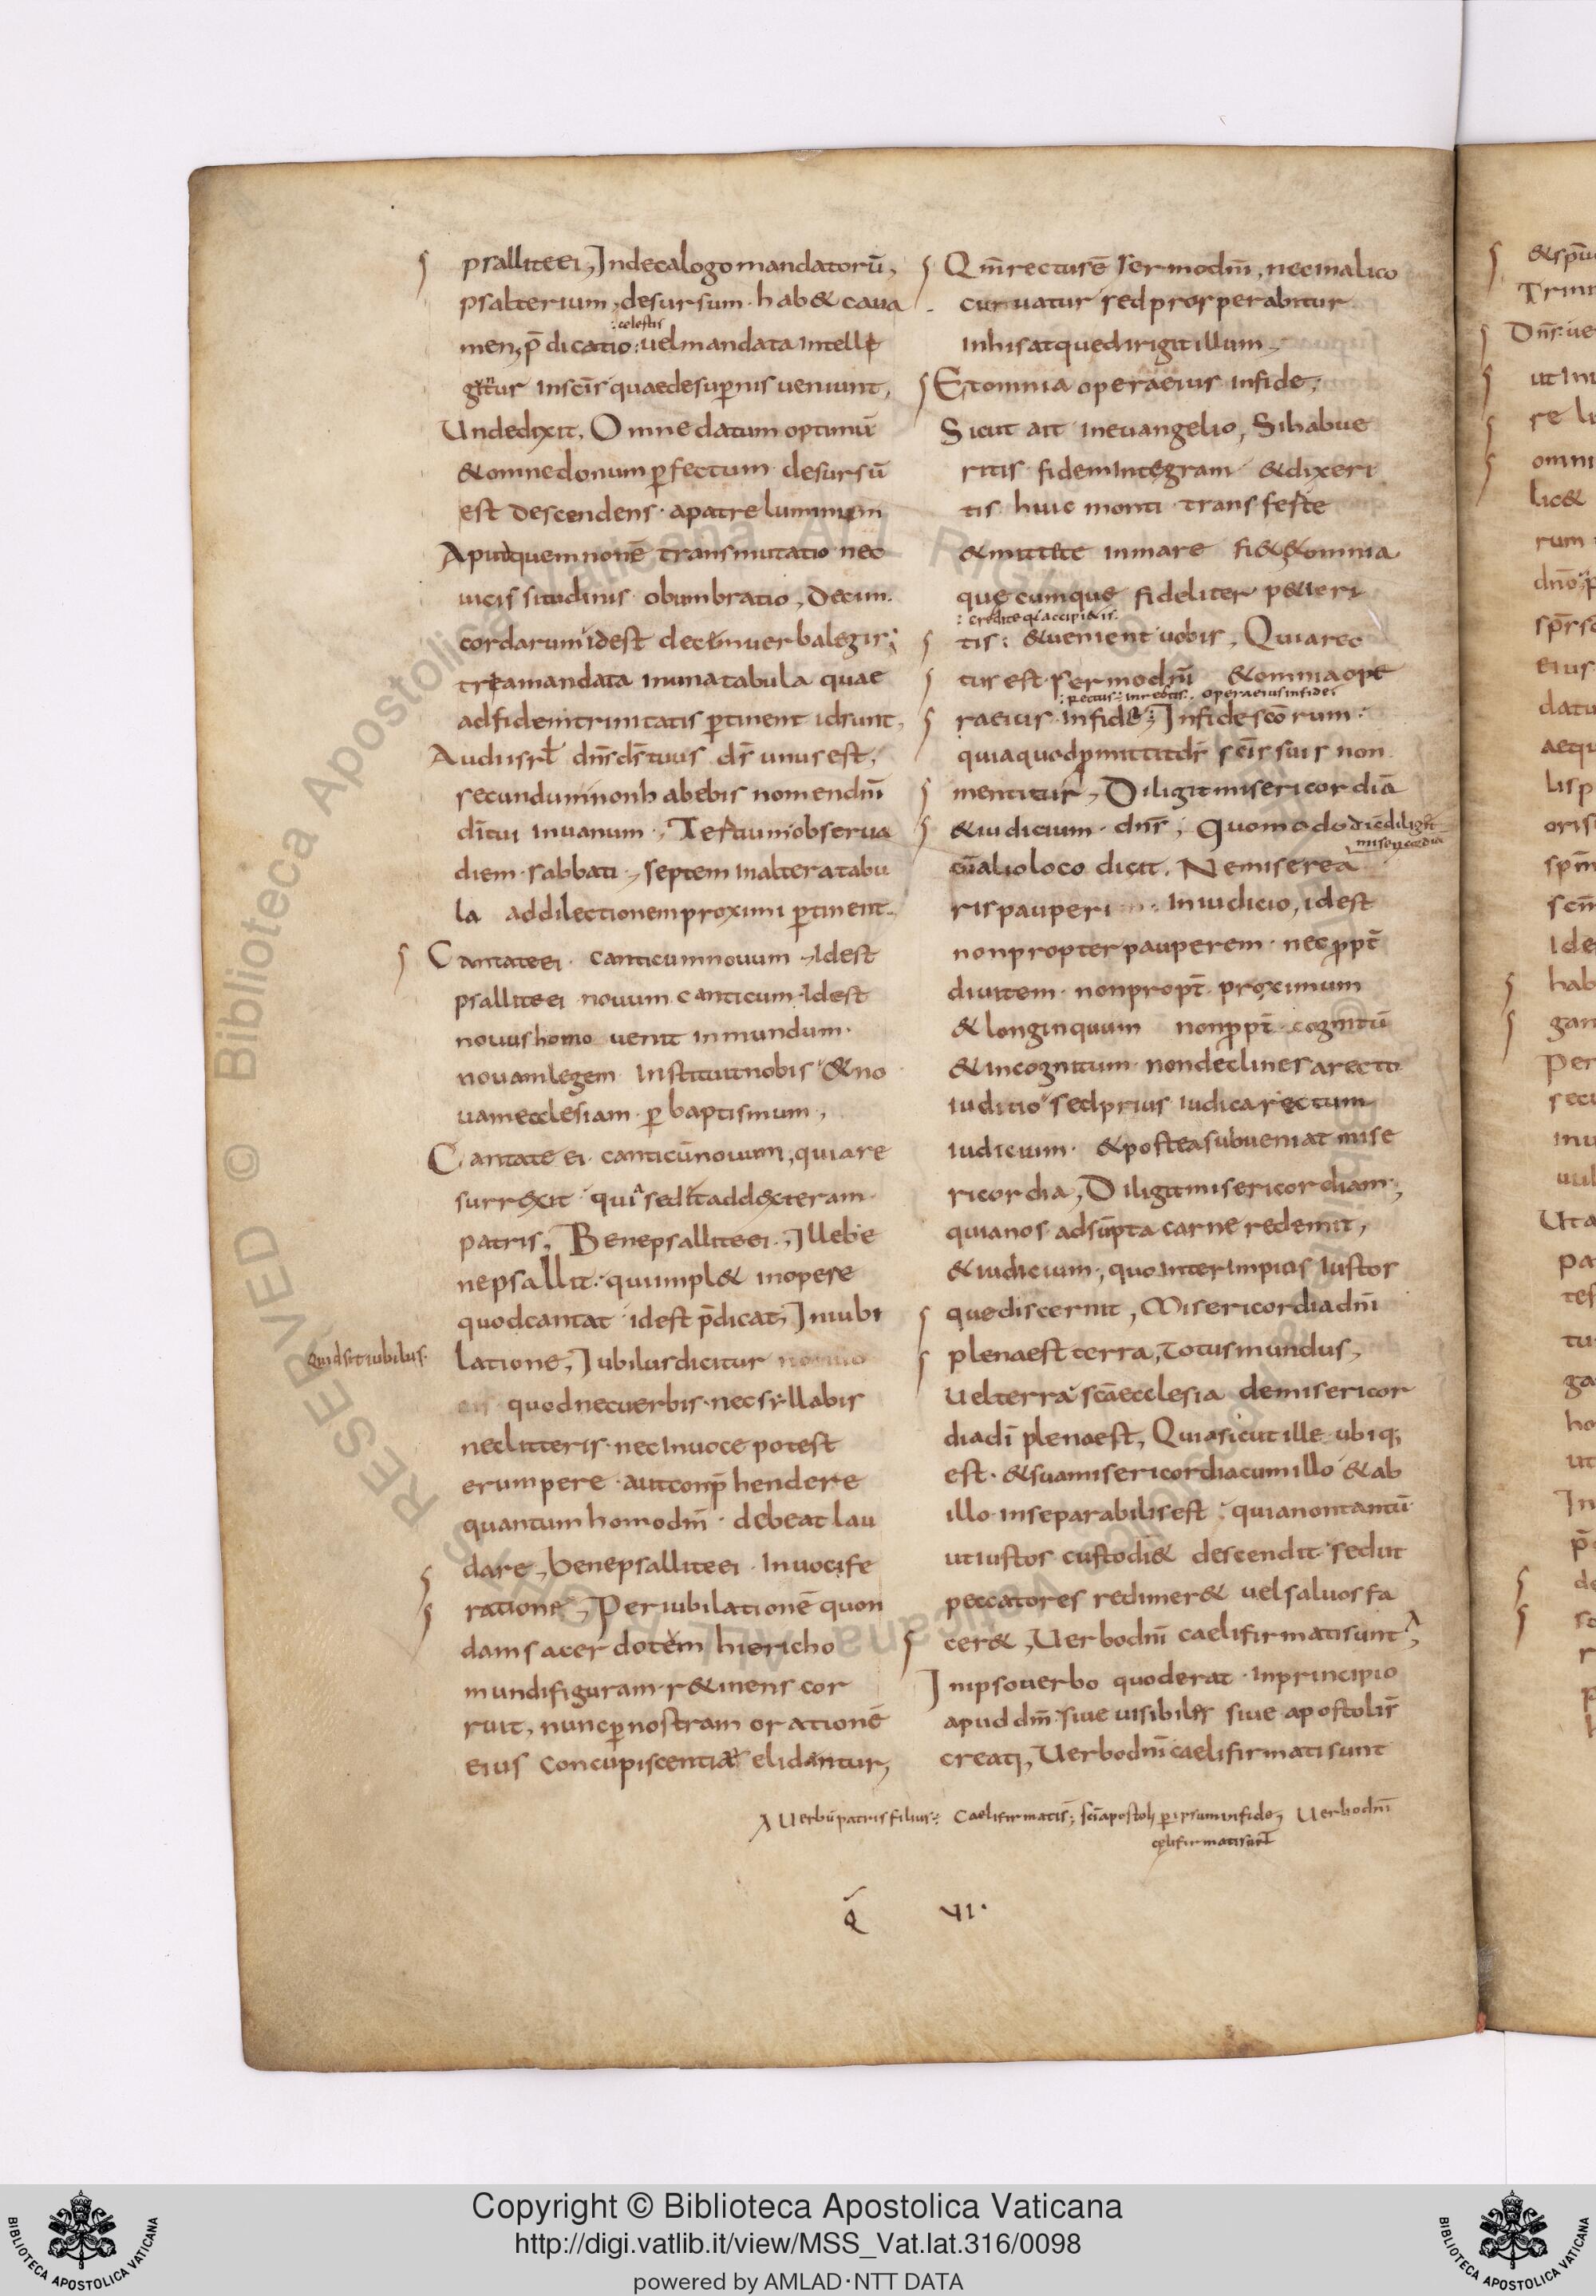 psalliteei, Indecalogomandatorū,
psalterium, desursum · hab& caua
: celestis
men, p̄dicatio: uelmandata intelle
gitur insc̄isquaedesupernis ueniunt,
Undedixit, Omne datum optimū
&omnedonum ꝑfectum desursū
est descendens · apatre luminum
Apudquemnonē transmutatio nec
uicissitudinis obumbratio, Decim
cordarum idest decemuerbalegis;
triamandata inunatabula quae
adfidemtrinitatis ꝑtinent idsunt,
Audiisrł dn̄sds̄tuus ds̄ unusest,
secundumnonhabebis nomendn̄i
dī tui inuanum, Tertium obserua
diem sabbati, septem inalteratabu
la addilectionemproximi ꝑtinent
Cantateei · canticumnouum, Idest
psalliteei nouum canticum Idest
nouushomo uenit inmundum ·
nouamlegem Instituitnobis &no
uamecclesiam ꝑ baptismum,
Cantate ei canticūnouum, quiare
surrexit quia seditaddexteram
patris, Benepsalliteei, Illebe
nepsallit: quiimpl& inopere
quodcantat idest p̄dicat, Iniubi
Quidsitiubilus.
latione, Iubilusdicitur
quodnecuerbis · necsyllabis
neclitteris · necInuoce potest
erumpere · autconp̄hendere
quantum homodm̄ · debeat lau
dare, benepsalliteei · Inuocife
ratione, Periubilationē quon
damsacerdotem hiericho
mundifiguram r&inens cor
ruit, nuncꝑnostram orationē
eius concupiscentiae elidantur,
Qm̄rectusē sermodn̄i, necinalico
curuatur sedprosperabitur
Inhisatquedirigitillum,
Etomnia operaeius infide,
Sicut ait ineuangelio, Sihabue
ritis fidemintegram &dixeri
tis huic monti transferte
&mittite inmare fi& &omnia
quę cumque fideliter p&ieri
: credite q̄accipi&is:
tis: &uenient uobis, Quiarec
tus est sermodn̄i &omniaope
: Rectus: Inrebus. operaeiusinfidei
raeius infide; Infidescōrum:
quiaquodꝓmittitds̄ sc̄issuis non
mentitur, Diligitmisericordiā
&iudicium · dns̄, Quomodo diēdiligit
misericordia
cūalioloco dicit, Nemiserea
rispauperi · Iniudicio, idest
nonpropterpauperem · necꝓpt̄
diuitem · nonpropt̄ proximum
& longinquum nonꝓpt̄ cognitū
&incognitum nondeclinesarecto
iuditio sedprius iudicarectum
iudicium · &posteasubueniat mise
ricordia, Diligitmisericordiam,
quianos adsūpta carne redemit,
&iudicium, quointerimpios Iustos
quediscernit, Misericordiadn̄i
plenaest terra, Totusmundus,
Uelterra scāecclesia demisericor
diadī plenaest, Quiasicut ille ubiq;
est · &suamisericordiacumillo &ab
illo inseparabilisest: quianontantū
utiustos custodi& descendit sedut
peccatores redimer& uelsaluosfa
cer&, Uerbodn̄i caelifirmatisunt,
Inipsouerbo quoderat · Inprincipio
apud dm̄ siue uisibiles siue apostolis
creati, Uerbodn̄icaelifirmatisunt
Uerbūpatrisfilius: Caelifirmatis̄; sc̄iapostoli ꝑipsuminfide, Uerbodn̄i
cęlifirmatisunt
Q VI.
&sp̄u
Trini
Dn̄s ue
ut inu
re
omni
lic&
rum
eius
datu
aequ
lisp
oris
sp̄m
scm̄
Ide
hab
gan
Per
secu
inu
Uta
pa
tes
tu
ga
ho
ut
In
de
Copyright © Biblioteca Apostolica Vaticana
http://digi.vatlib.it/view/MSS_Vat.lat.316/0098
powered by AMLAD·NTT DATA
BIBLIOTECA APOSTOLICA VATICANA
BIBLIOTECA APOSTOLICA VATICANA